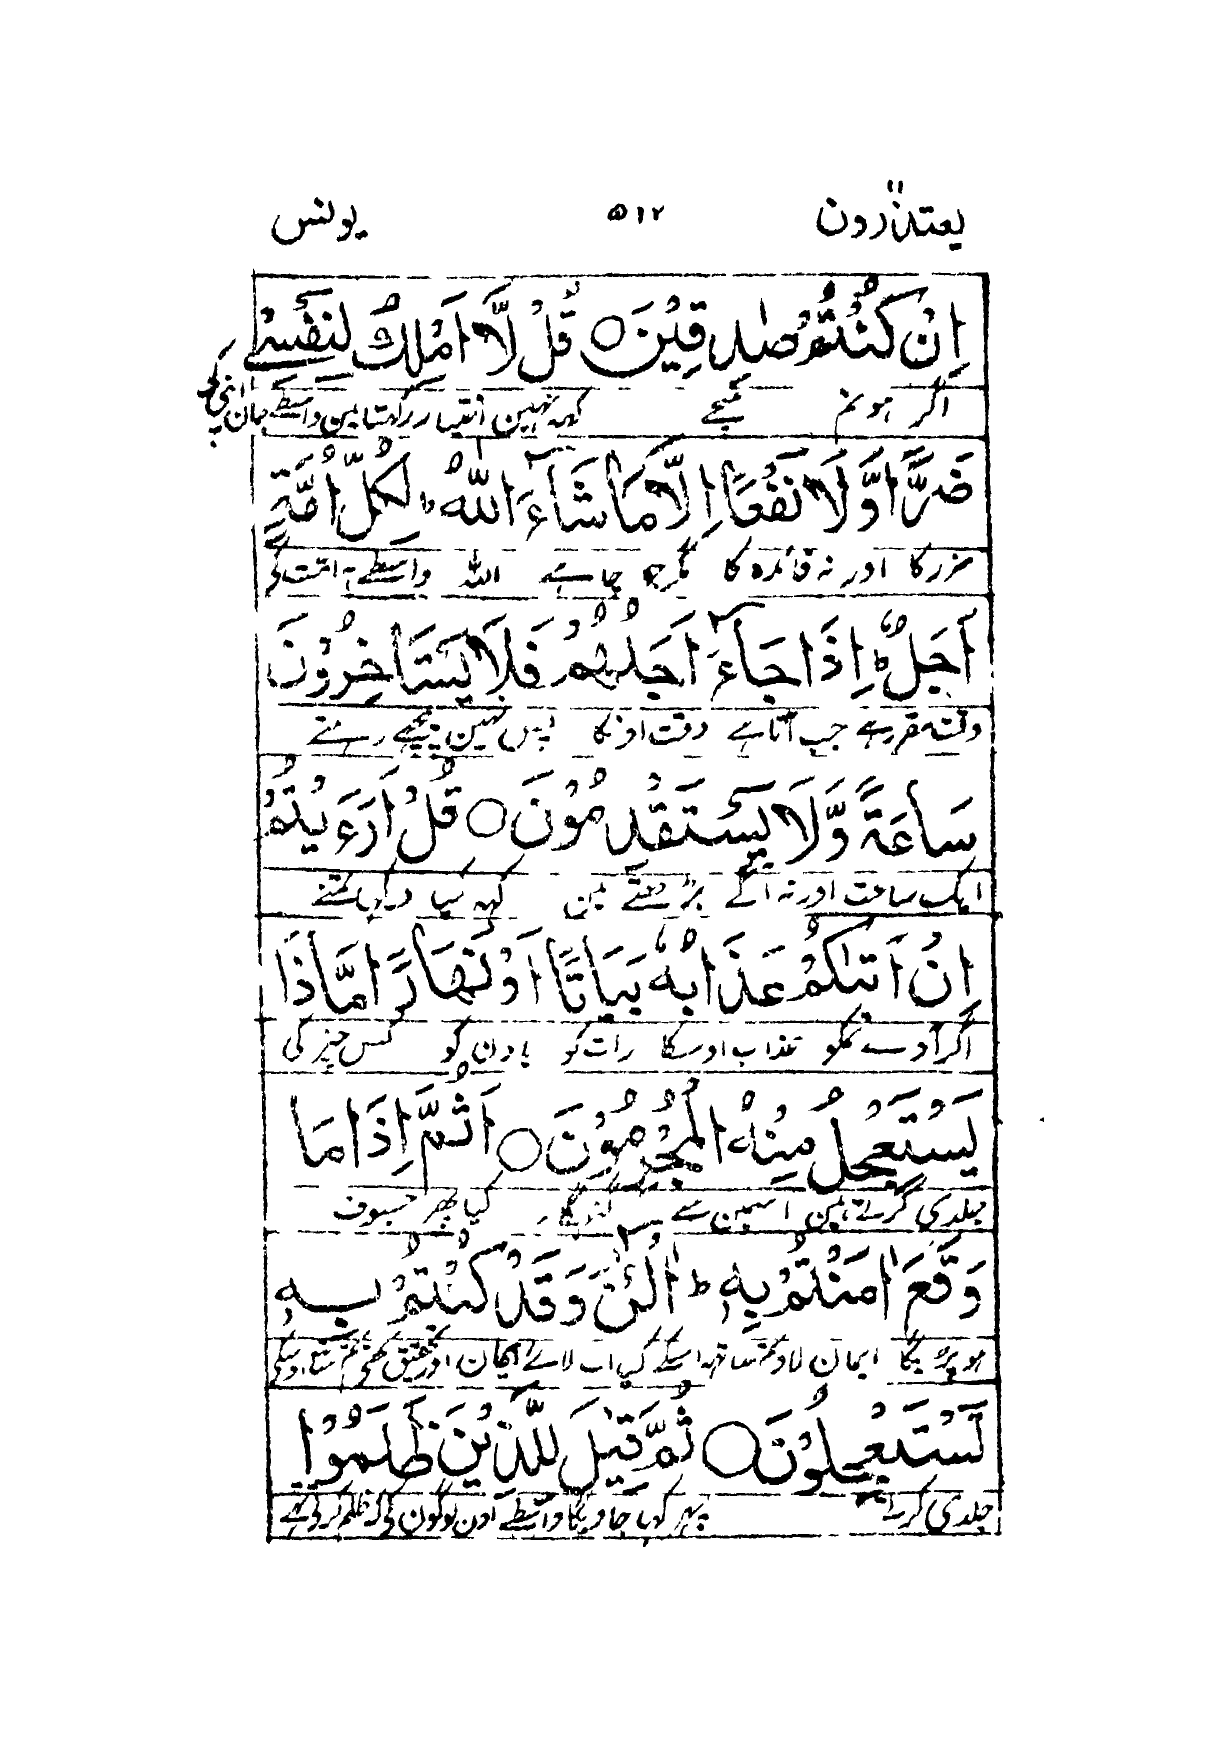 یعتذرون ۵۱۲ یونس
اِنْ كُنْتُمْ صٰدِقِيْنَ ○ قُلْ لَّا اَمْلِكُ لِنَفْسِيْ
اگر ہو تم سچے کہہ نہین اختیار رکھتا مین واسطے جان اپنی کے
ضَرًّا وَّلَا نَفْعًا اِلَّا مَا شَآءَ اللّٰهُ ؕ لِكُلِّ اُمَّةٍ
ضرر کا اور نہ فائدہ کا مگر جو چاہے اللہ واسطے ہر امت کے
اَجَلٌ ؕ اِذَا جَآءَ اَجَلُهُمْ فَلَا يَسْتَاْخِرُوْنَ
وقت مقرر ہے جب آتا ہے وقت اونکا پس نہین پیچھے رہتے
سَاعَةً وَّلَا يَسْتَقْدِمُوْنَ ○ قُلْ اَرَءَيْتُمْ
ایک ساعت اور نہ آگے بڑھتے ہین کہہ کیا دیکھا تمنے
اِنْ اَتٰىكُمْ عَذَابُهٗ بَيَاتًا اَوْ نَهَارًا مَّاذَا
اگر آوے تمکو عذاب اوسکا رات کو یا دن کو کس چیز کی
يَسْتَعْجِلُ مِنْهُ الْمُجْرِمُوْنَ ○ اَثُمَّ اِذَا مَا
جلدی کرتے ہین اسمین سے گنہگار کیا پھر جسوقت
وَقَعَ اٰمَنْتُمْ بِهٖ ؕ آٰلْئٰنَ وَقَدْ كُنْتُمْ بِهٖ
ہو پڑیگا ایمان لاوگے ساتھ اسکے کیا اب لائے ایمان اور تحقیق تھے تم
تَسْتَعْجِلُوْنَ ○ ثُمَّ قِيْلَ لِلَّذِيْنَ ظَلَمُوْا
جلدی کرتے پھر کہا جاویگا واسطے اون لوگون کے کہ ظلم کرتے تھے